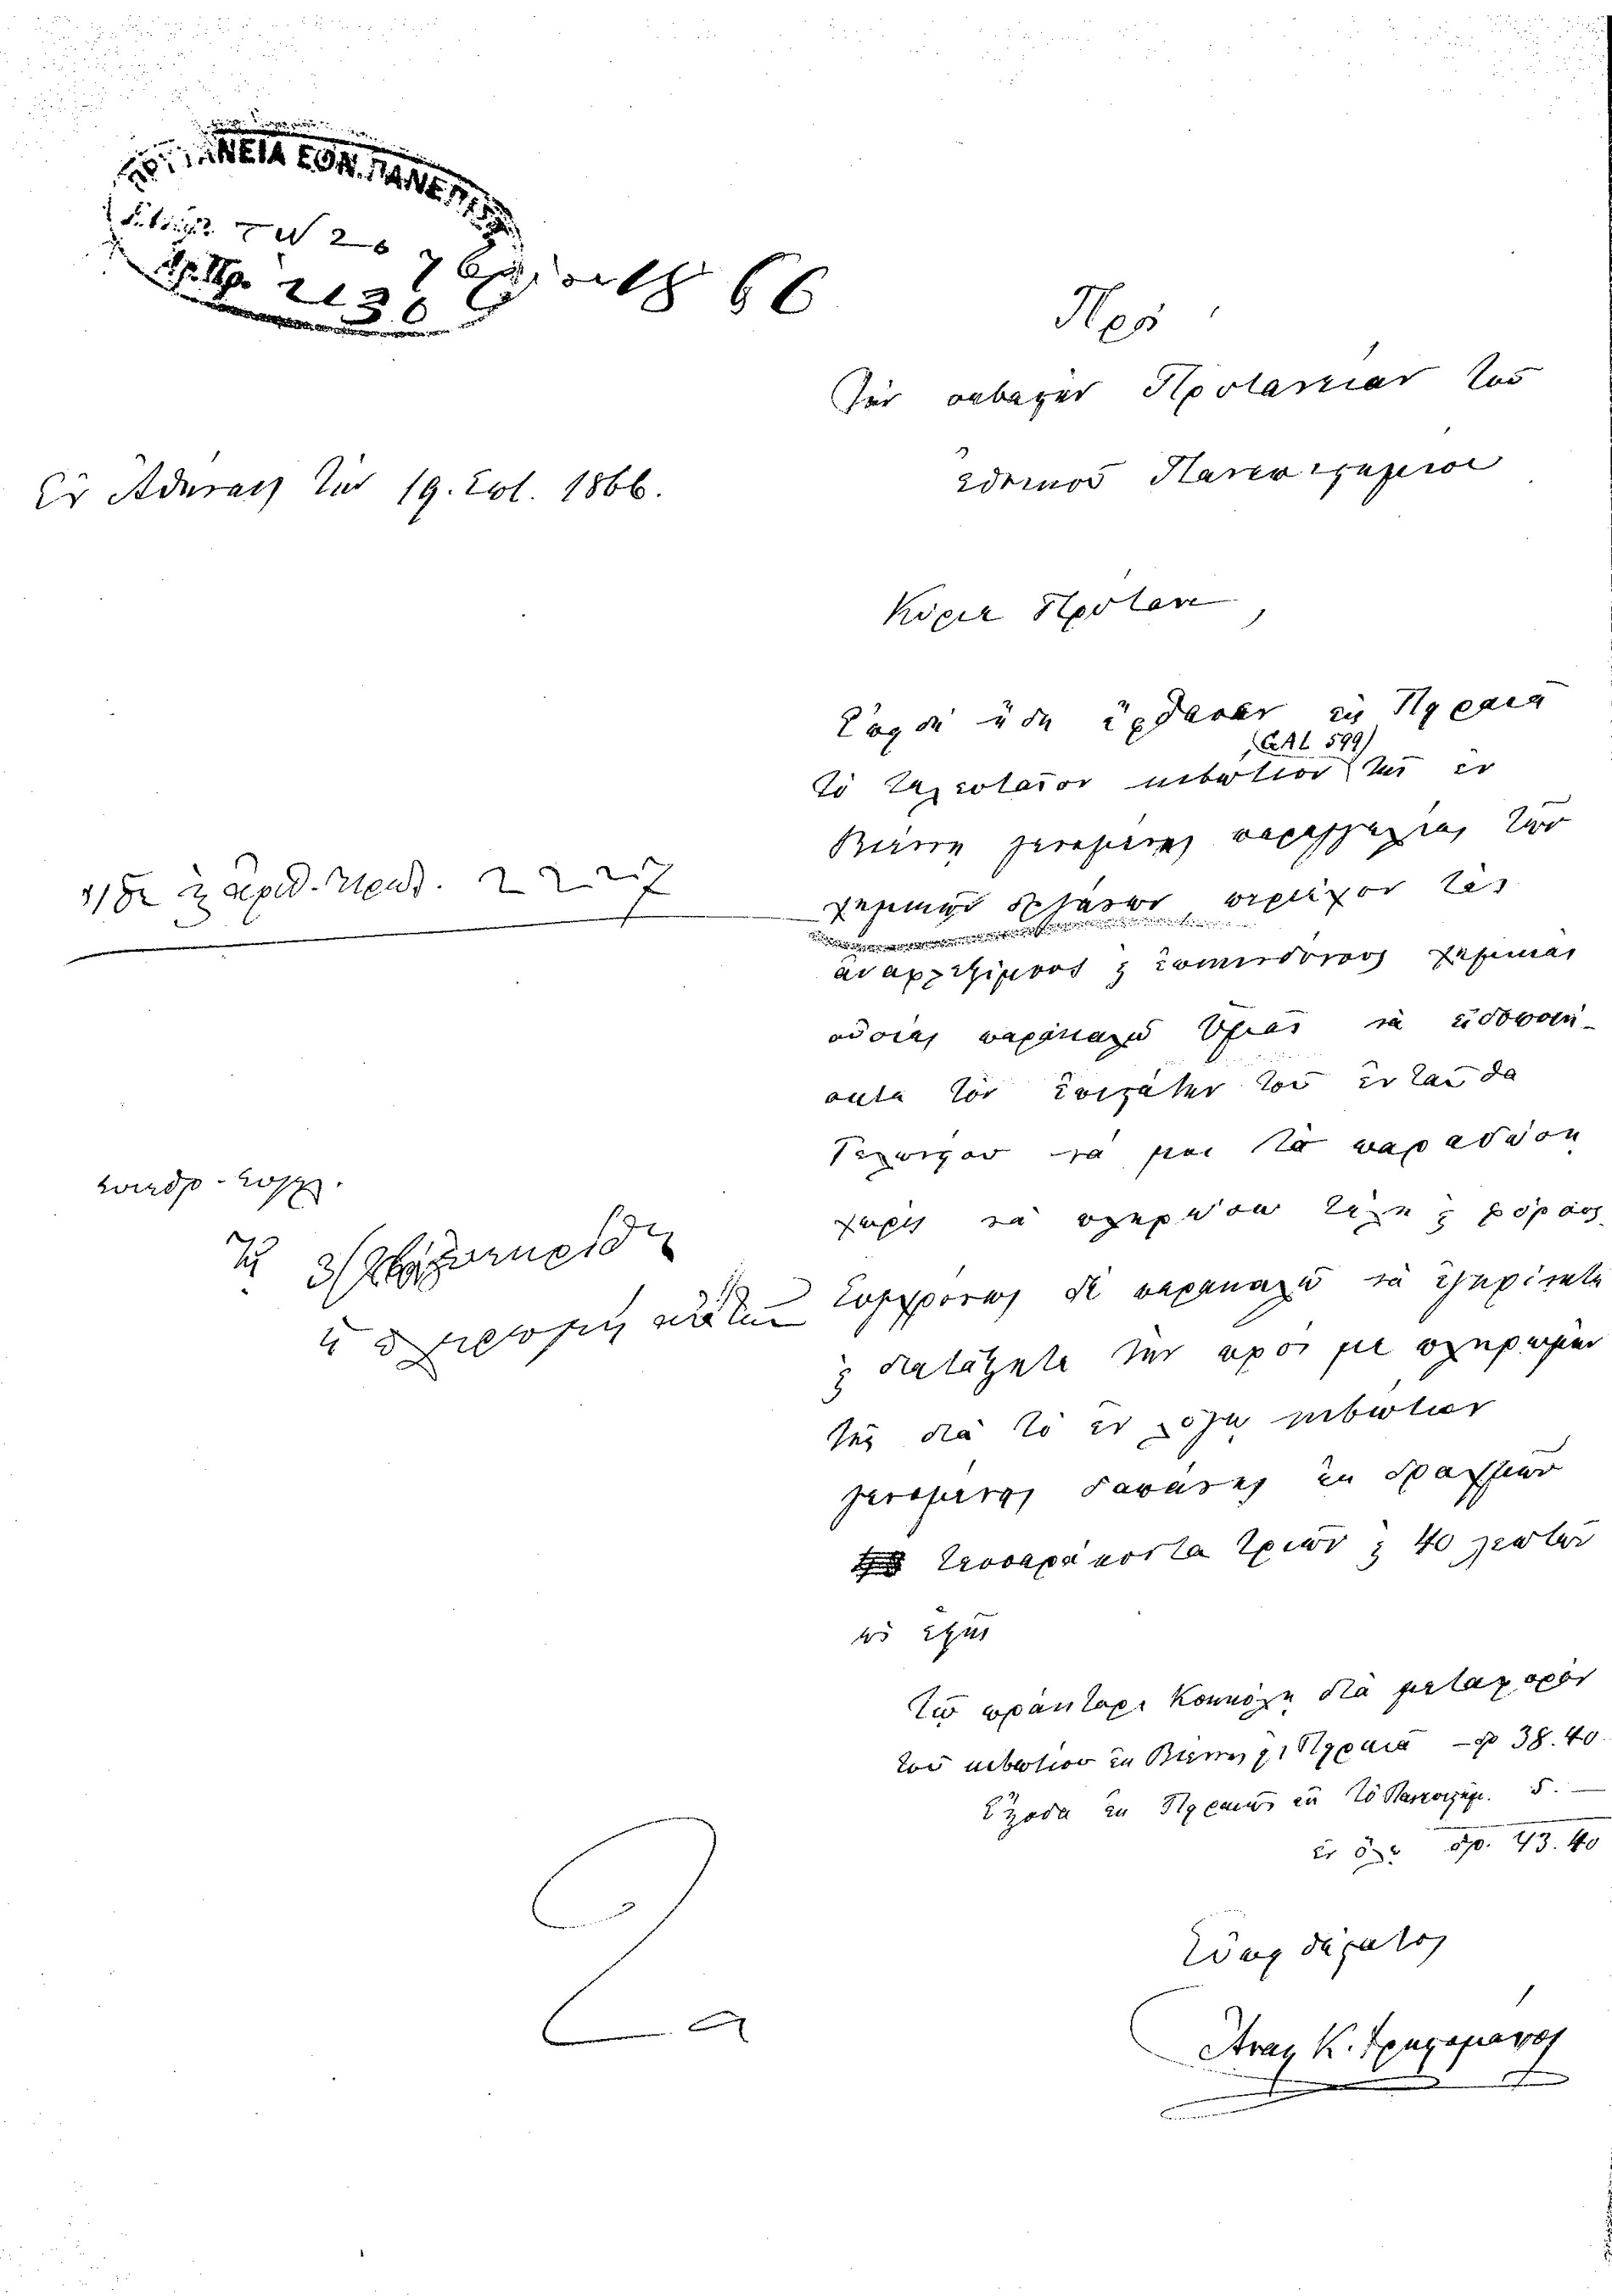 ΠΡΥΤΑΝΕΙΑ ΕΘΝ. ΠΑΝΕΠΙΣ
τῇ 20 7βρίου 66
Ἀρ. Πρ. 2136
Πρὸς
Τὴν σεβαστὴν Πρυτανείαν τοῦ
ἐθνικοῦ Πανεπιστημίου
Ἐν Ἀθήναις τὴν 19. Σεπτ. 1866.
Κύριε Πρύτανι,
Ἐπειδὴ ἤδη ἔφθασεν εἰς Πειραιᾶ
τὸ τελευταῖον κιβώτιον (GAL 599) τῆς ἐν
Βιέννῃ γενομένης παραγγελίας τῶν
χημικῶν σκευῶν περιέχον τὰς
ἀναφλεξίμους καὶ ἐπικινδύνους χημικὰς
οὐσίας παρακαλῶ Ὑμᾶς νὰ εἰδοποιή-
σητε τὸν ἐπιστάτην τοῦ ἐνταῦθα
Τελωνίου νὰ μοι τὸ παραδώσῃ
χωρὶς νὰ πληρώσω τέλη καὶ φόρους.
Συγχρόνως δὲ παρακαλῶ νὰ ἐγκρίνητε
καὶ διατάξητε τὴν πρός με πληρωμὴν
τῆς διὰ τὸ ἐν λόγῳ κιβώτιον
γενομένης δαπάνης ἐκ δραχμῶν
τεσσαράκοντα τριῶν καὶ 40 λεπτῶν
ὡς ἑξῆς
Τῷ πράκτορι διὰ μεταφορὰν
τοῦ κιβωτίου ἐκ Βιέννης εἰς Πειραιᾶ – δρ 38.40
Ἔξοδα ἐκ Πειραιῶς εἰς τὸ Πανεπιστήμ. 5. —
ἐν ὅλῳ δρ. 43.40
Εὐπειθέστατος
Ἀναστ. Κ. Χρηστομάνος
ἴδε καὶ ἀριθ. πρωτ. 2227
2a